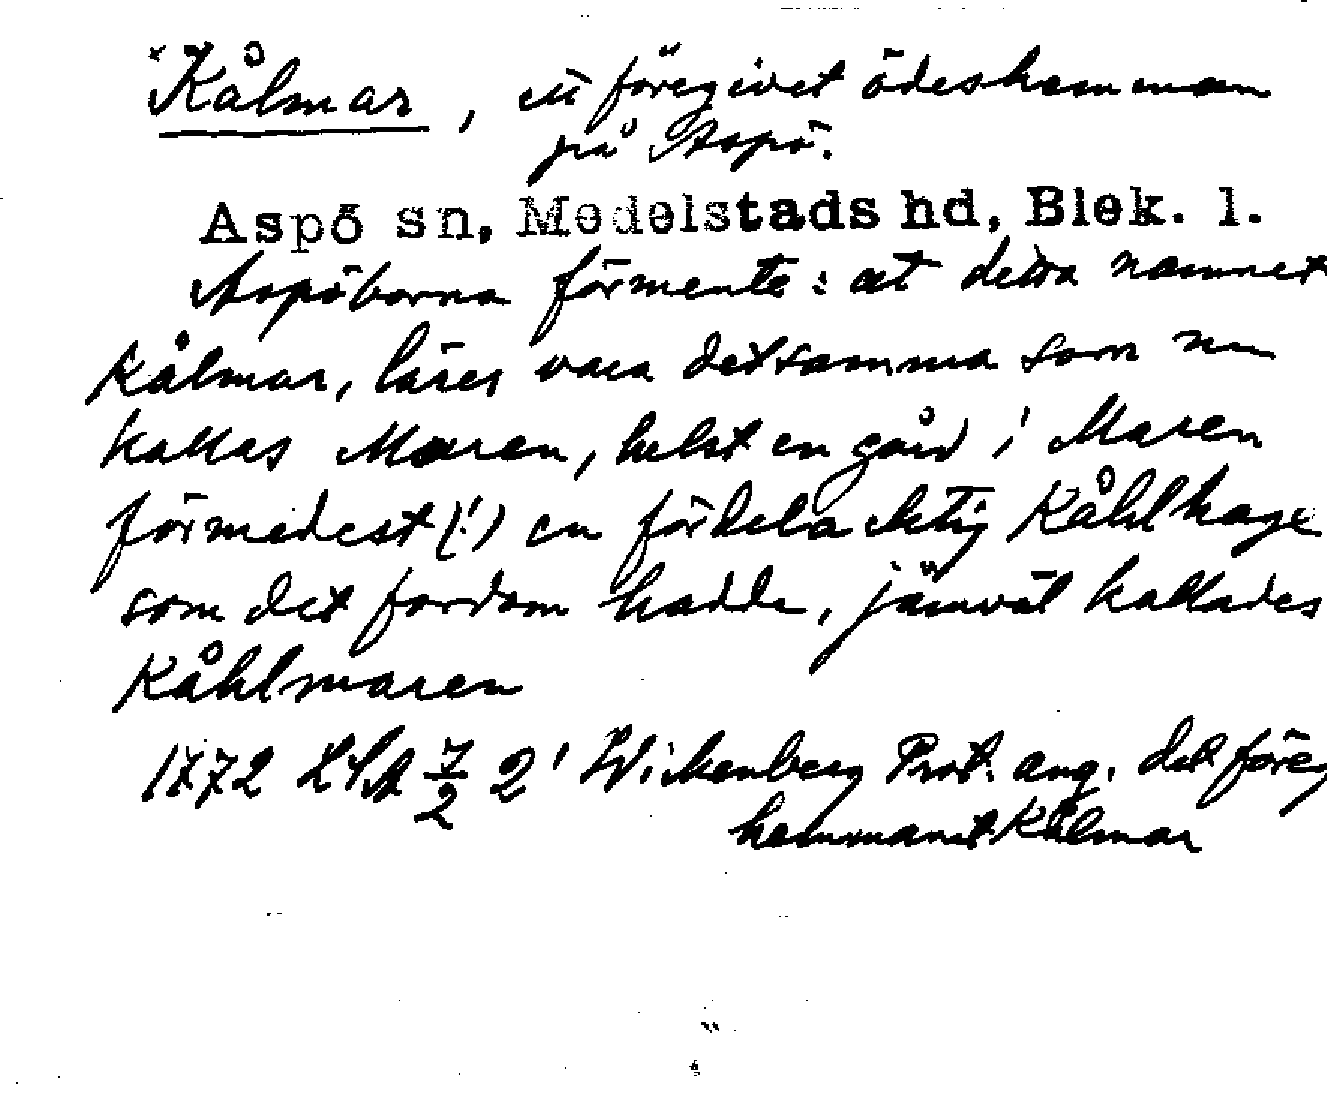 *Kålmar, ett föregivet ödeshemman
på Aspö.
Aspö sn, Medelstads hd, Blek. l.
Aspöborna förmente: at detta namnet
Kålmar, läres vara detsamma som nu
kallas Maren, helst en gård i Maren
förmedest(!) en fördelacktig Kåhlhage
som det fordom hadde, jämväl kallades
Kåhlmaren
1772 LSA 7/2 2' Wickenberg Prot. ang. det föreg
hemmanet Kålmar